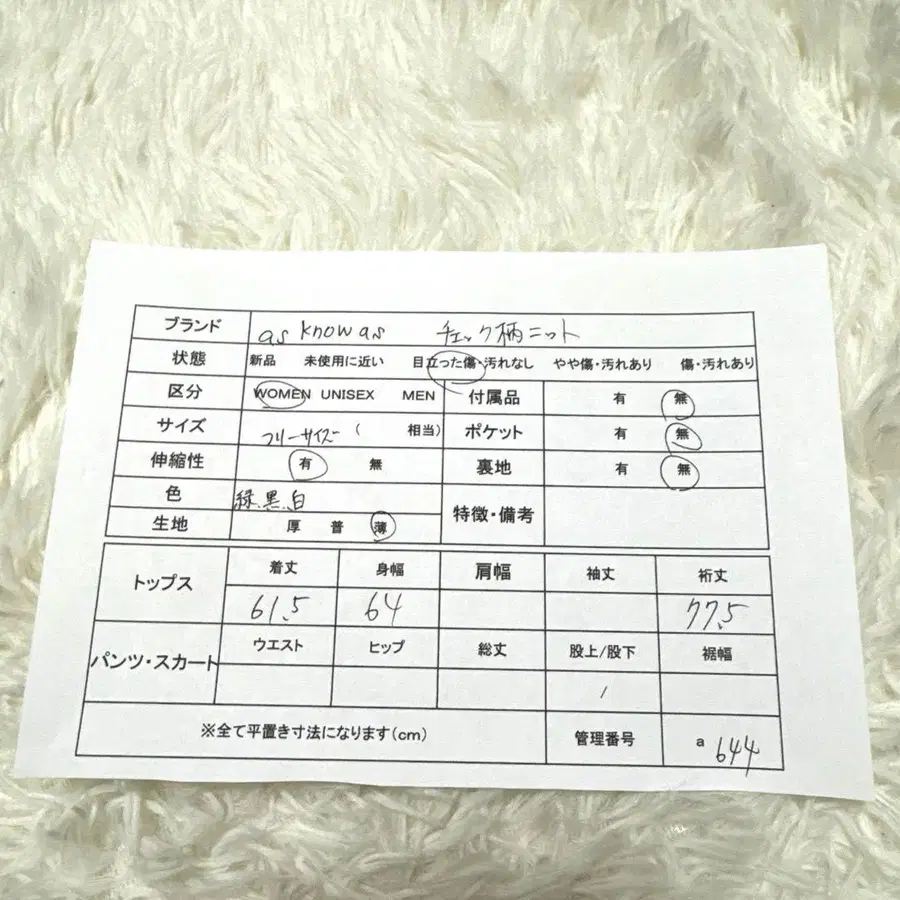 ブランド as know as チェック柄ニット
状態 新品 未使用に近い 目立った傷・汚れなし やや傷・汚れあり 傷・汚れあり
区分 WOMEN UNISEX MEN 付属品 有 無
サイズ フリーサイズ ( 相当) ポケット 有 無
伸縮性 有 無 裏地 有 無
色 緑.黒.白 特徴・備考
生地 厚 普 薄
トップス 着丈 身幅 肩幅 袖丈 裄丈
61.5 64 77.5
パンツ・スカート ウエスト ヒップ 総丈 股上/股下 裾幅
/
※全て平置き寸法になります(cm) 管理番号 a 644